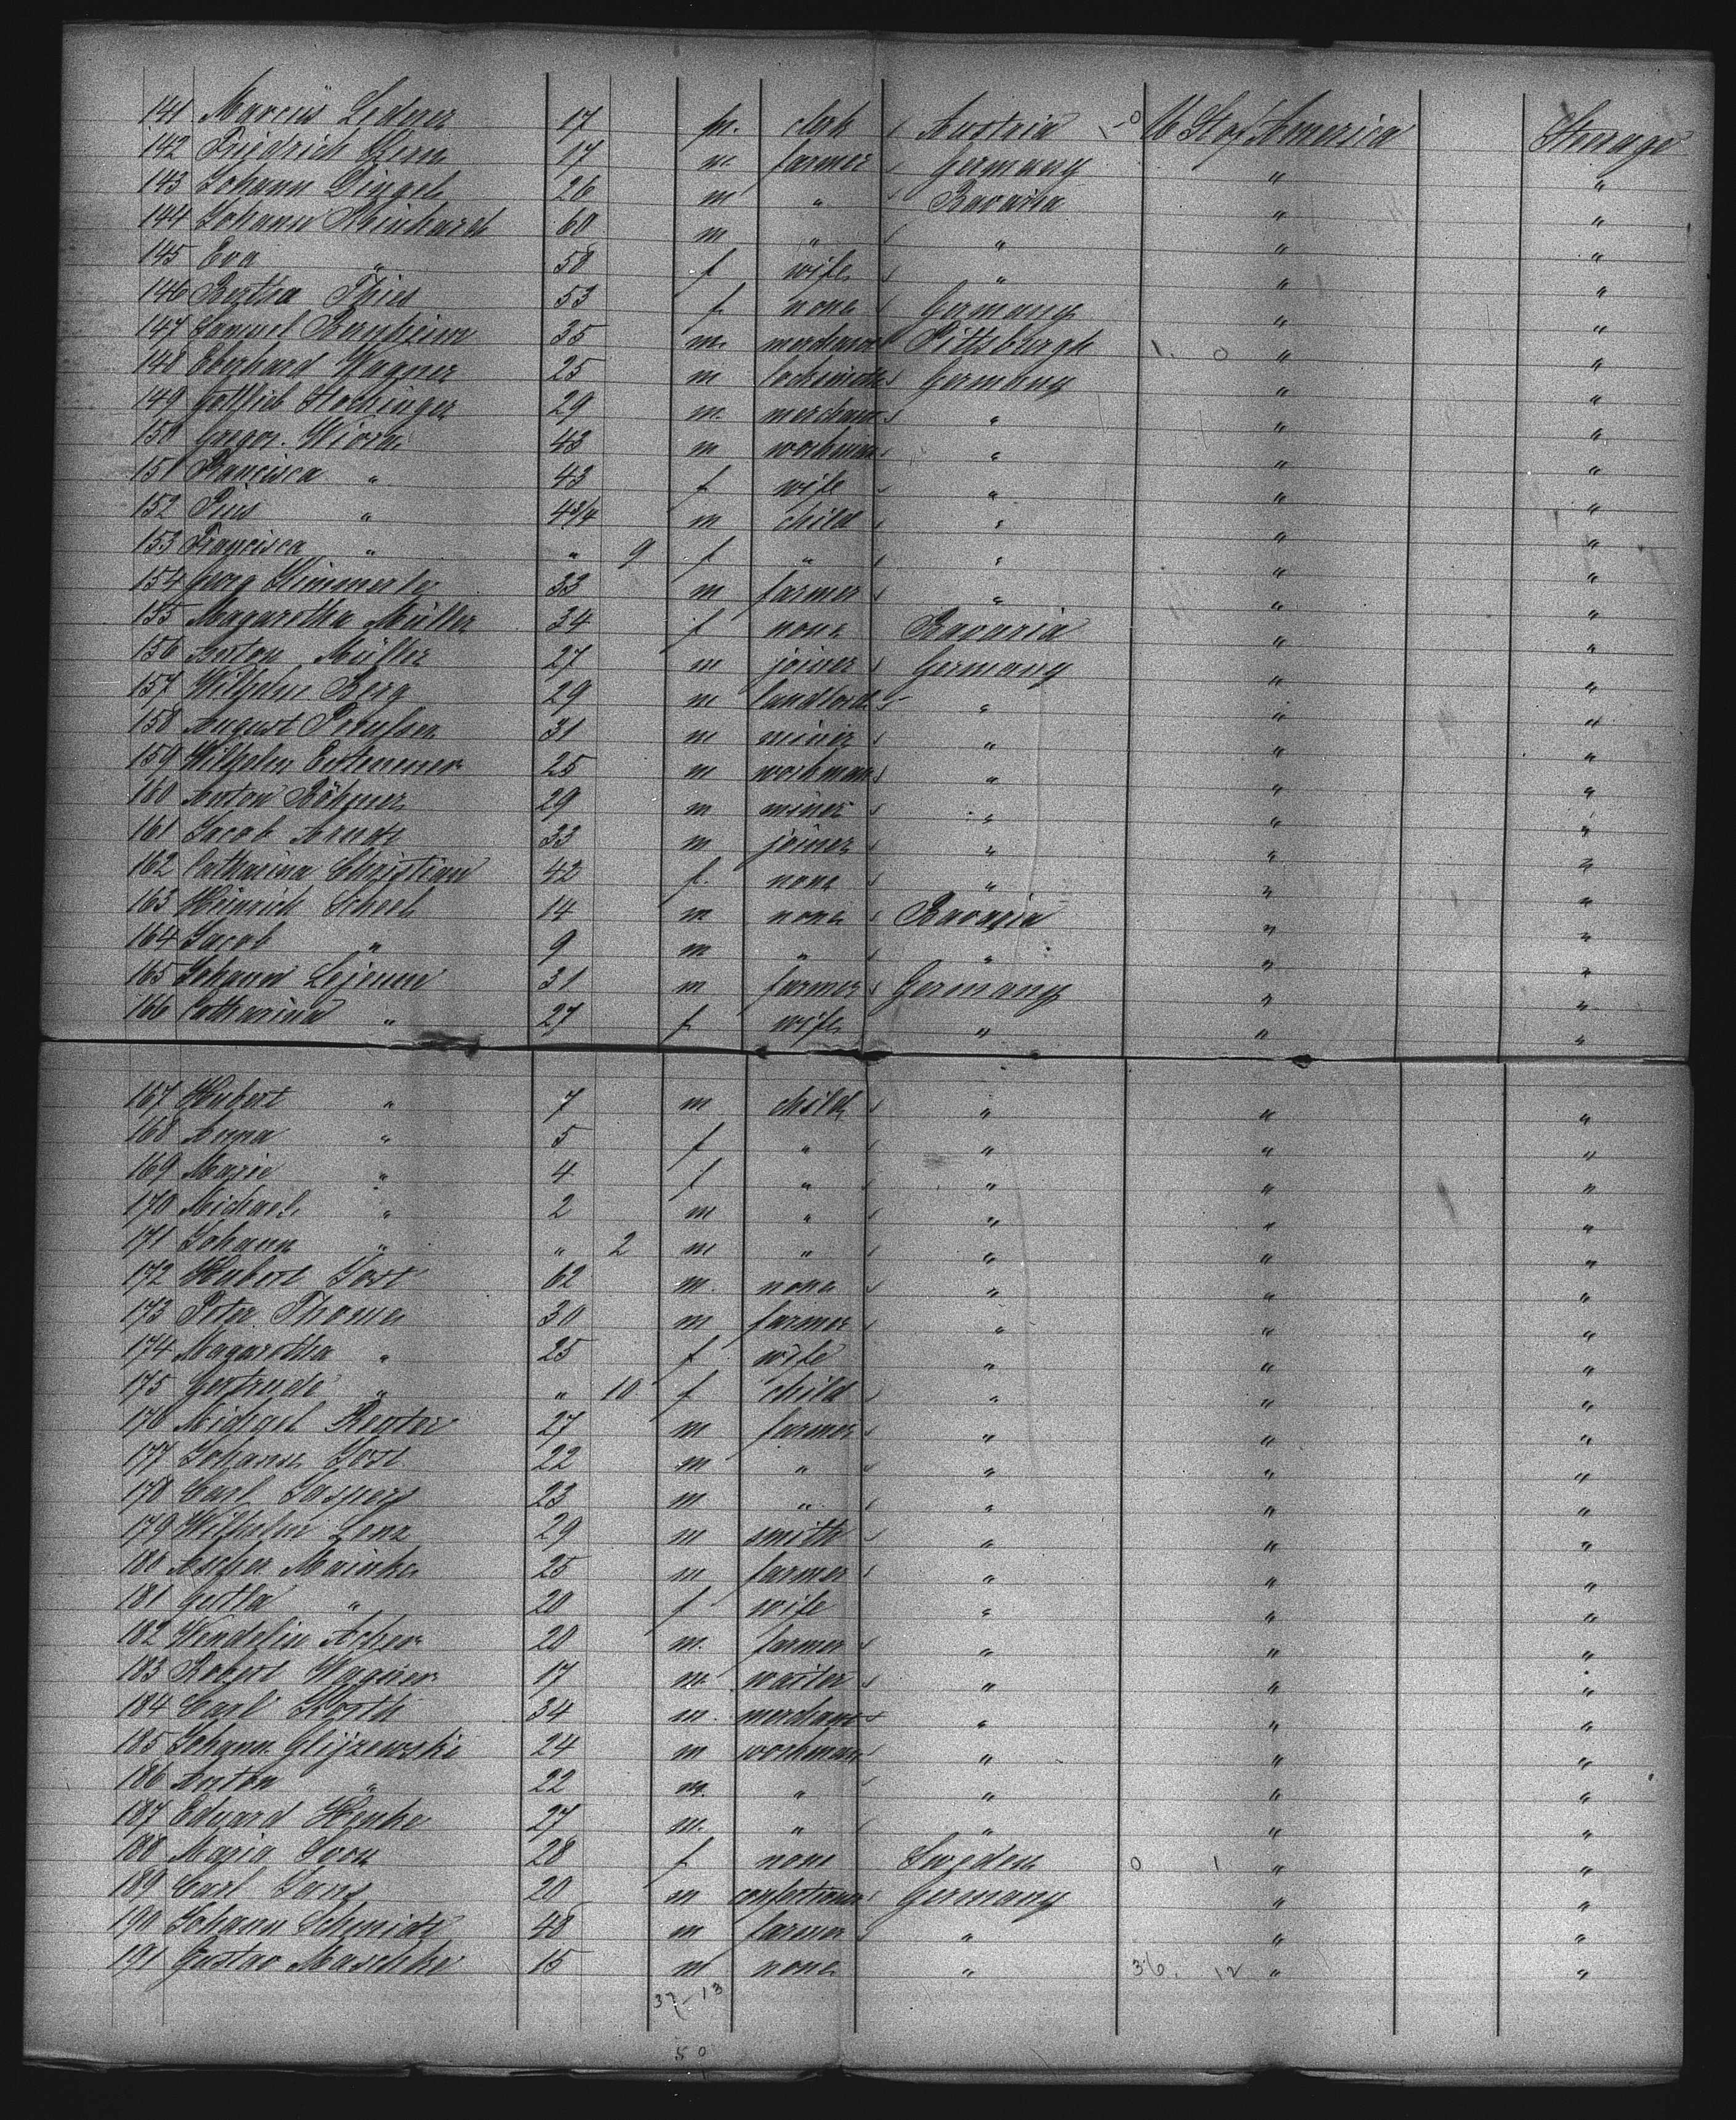 141 Marcus Lederer 17 m. clerk Austria 1-0 U St of America Steerage
142 Friedrich 17 m farmer Germany " "
143 Johann Dingel 26 m " Bavaria " "
144 Johann Reinhard 60 m " " " "
145 Eva " 58 f wife " " "
146 Bertha Thies 53 f none Germany " "
147 Samuel Bernheim 35 m. merchant Pittsburgh 1. 0 " "
148 Eberhard Wagner 25 m locksmith Germany " "
149 Gottlieb 29 m. merchant " " "
150 Gregor. 43 m workman " " "
151 Francisca " 43 f wife " " "
152 Pius " 4 3/4 m child " " "
153 Francisca " " 9 f " " " "
154 Georg Kimmerle 33 m farmer " " "
155 Magaretha Müller 34 f none Bavaria " "
156 Anton Müller 27 m joiner Germany " "
157 Wilhelm Berg 29 m landlord " " "
158 August Paulsen 31 m miner " " "
159 Wilhelm 25 m workman " " "
160 Anton Böhmer 29 m miner " " "
161 Jacob Arndt 33 m joiner " " "
162 Catharina Christian 42 f. none " " "
163 Heinrich Scheel 14 m none Bavaria " "
164 Jacob " 9 m " " " "
165 Johann Lejeune 31 m farmer Germany " "
166 Catharina " 27 f wife " " "
167 Hubert " 7 m child " " "
168 Anna " 5 f " " " "
169 Marie " 4 f " " " "
170 Michael " 2 m " " " "
171 Johann " " 2 m " " " "
172 Hubert Jost 62 m. none " " "
173 Peter Thome 30 m farmer " " "
174 Magaretha " 25 f wife " " "
175 Gertrude " " 10 f child " " "
176 Michael Reuter 27 m farmer " " "
177 Johann Jost 22 m " " " "
178 Carl Jaspers 23 m " " " "
179 Wilhelm Lenz 29 m smith " " "
180 Ascher Mainke 25 m farmer " " "
181 " 20 f wife " " "
182 Wendelin Acher 20 m. farmer " " "
183 Robert Wagner 17 m waiter " " "
184 Carl Korth 34 m. merchant " " "
185 Johann Glijzewski 24 m workman " " "
186 Anton " 22 m. " " " "
187 Eduard Henke 27 m. " " " "
188 Maria 28 f none Sweden 0 1 " "
189 Carl Jans 20 m confectioner Germany " "
190 Johann Schmidt 48 m farmer " " "
191 Gustav Maschke 15 m none " 36. 12 " "
37-13
50